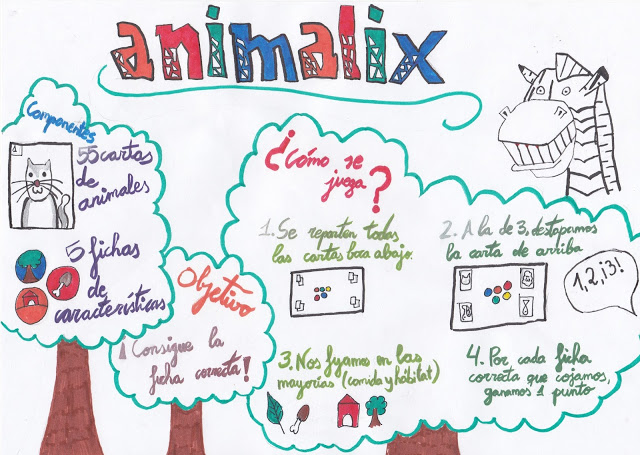 animalix
Componentes
55 cartas
de
animales
5 fichas
de
características
Objetivo
¡Consigue la
ficha correcta!
¿Cómo se
juega?
1. Se reparten todas
las cartas boca abajo.
2. A la de 3, destapamos
la carta de arriba
1, 2, ¡3!
3. Nos fijamos en las
mayorías (comida y hábitat)
4. Por cada ficha
correcta que cojamos,
ganamos 1 punto